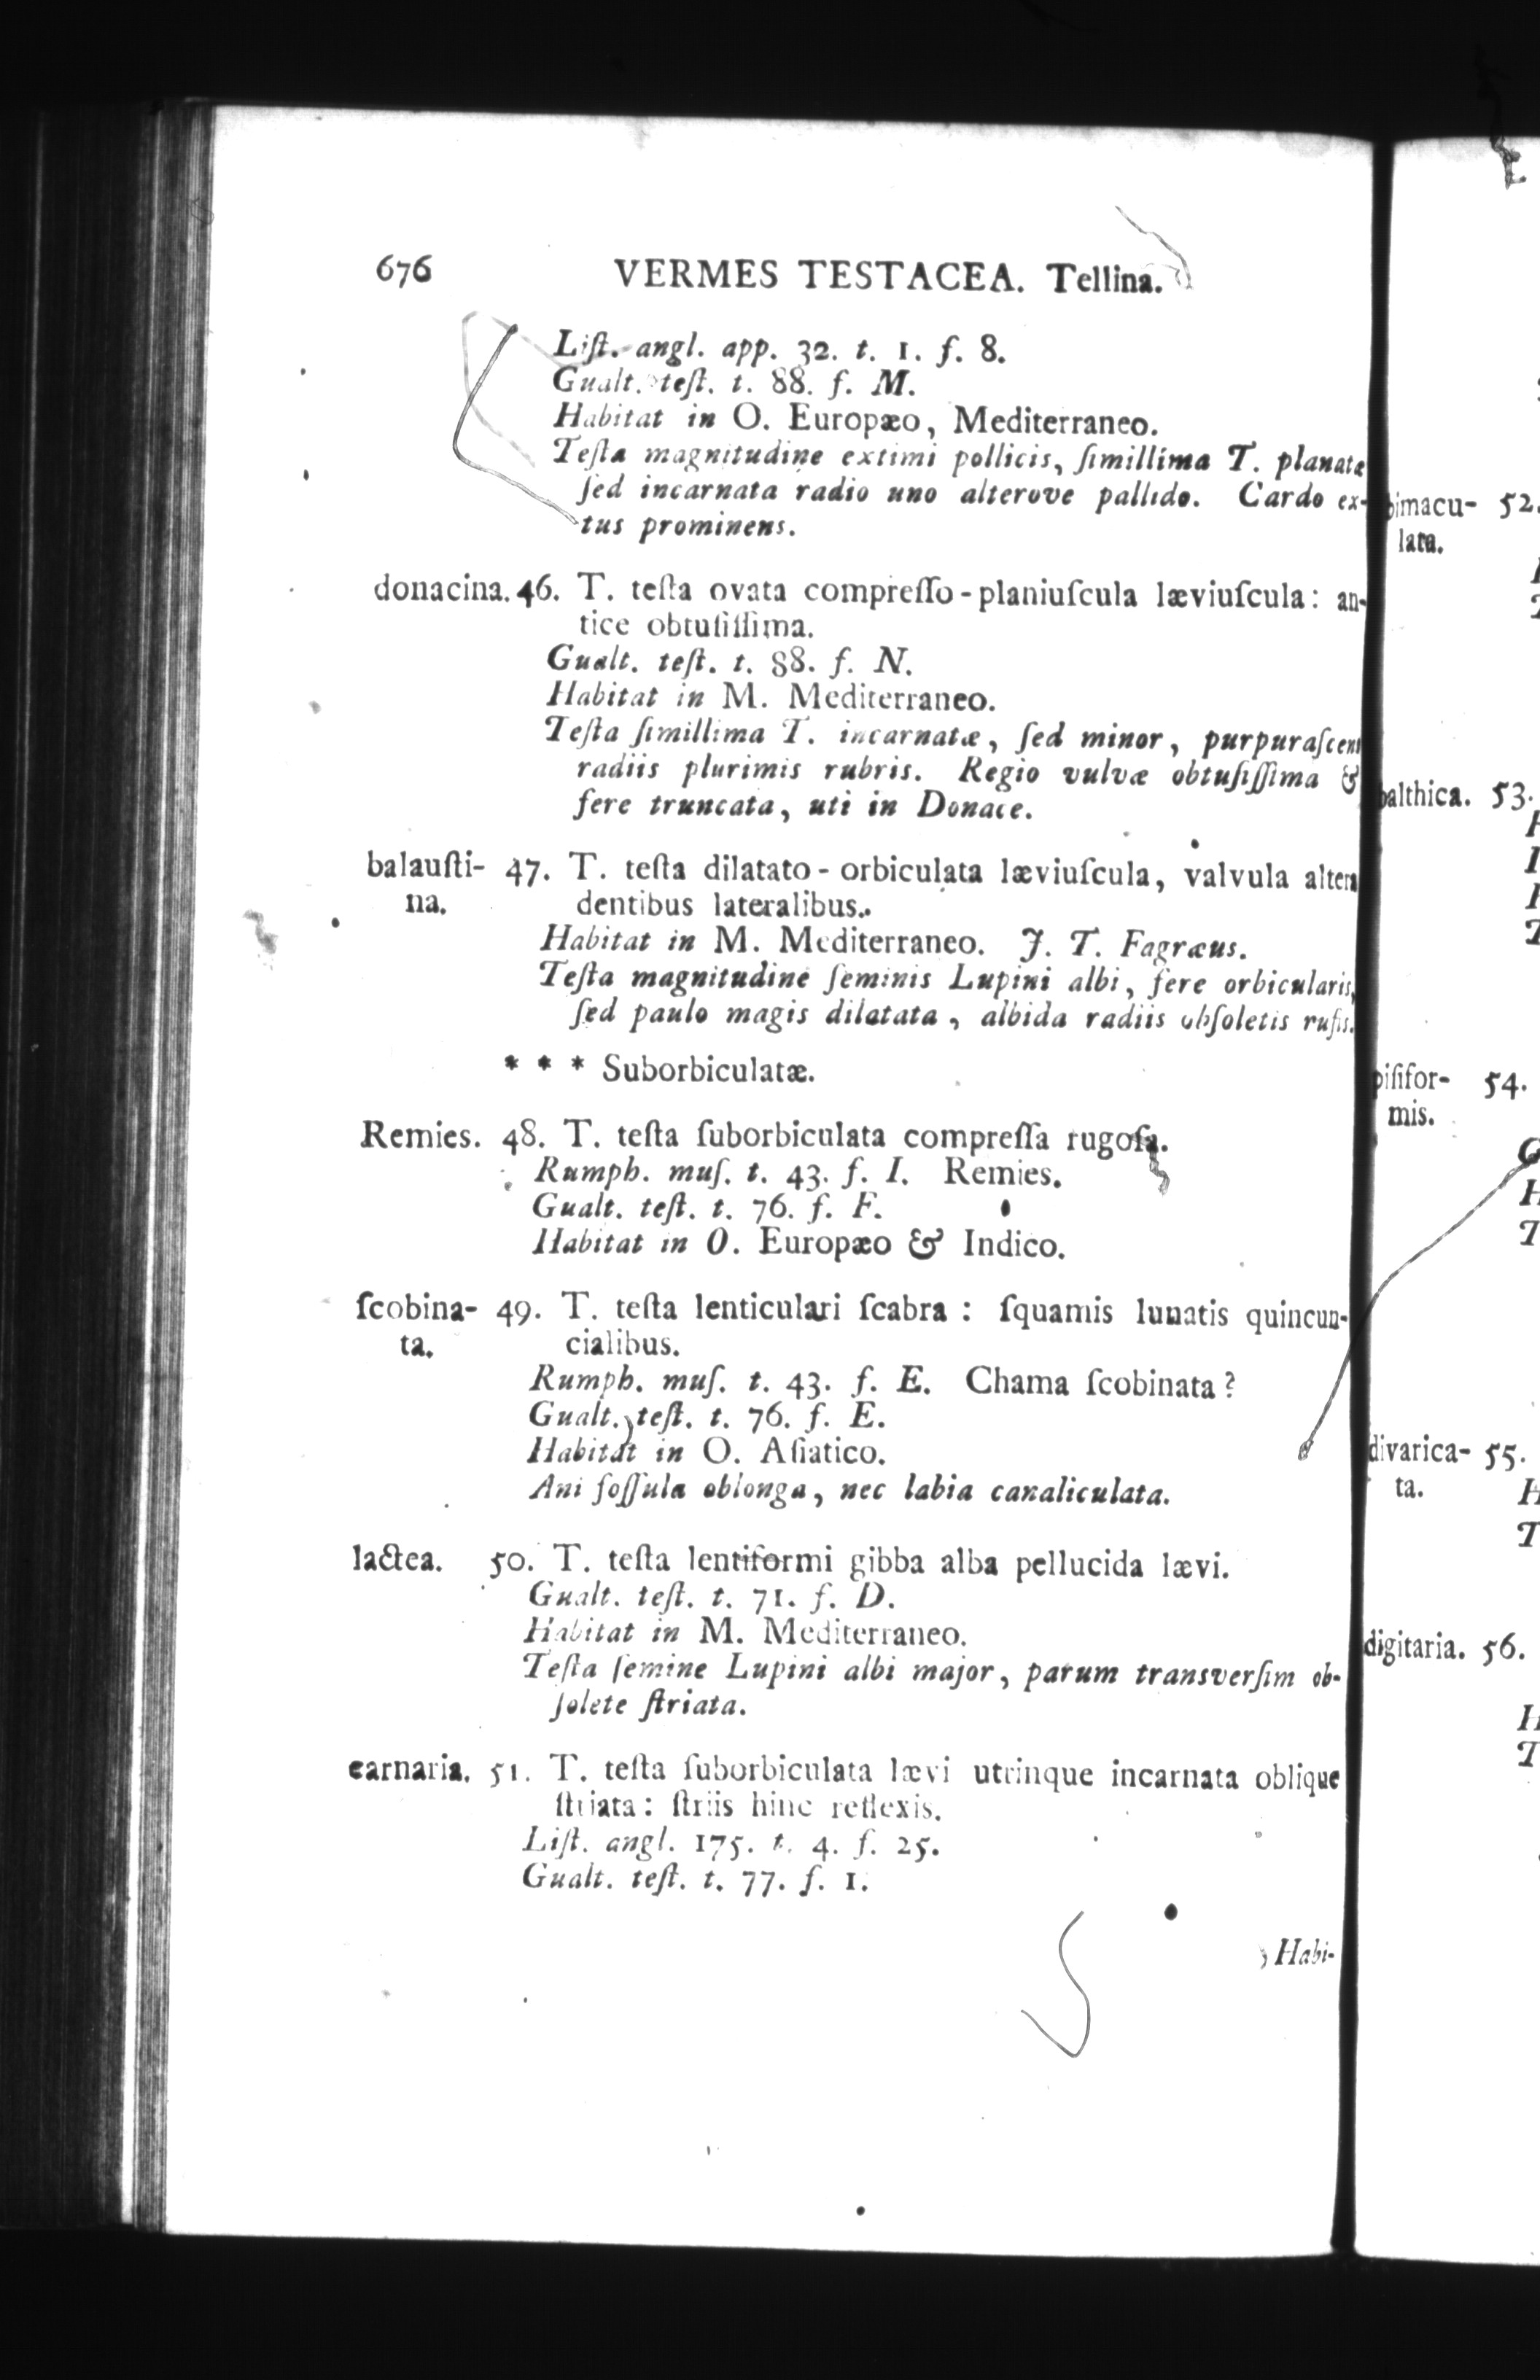 676 VERMES TESTACEA. Tellina.
Liſt. angl. app. 32. t. 1. f. 8.
Gualt. teſt. t. 88. f. M.
Habitat in O. Europæo, Mediterraneo.
Teſta magnitudine extimi pollicis, ſimillima T. planatæ
ſed incarnata radio uno alterove pallido. Cardo ex-
tus prominens.
donacina. 46. T. teſta ovata compreſſo-planiuſcula læviuſcula: an-
tice obtuſiſſima.
Gualt. teſt. t. 88. f. N.
Habitat in M. Mediterraneo.
Teſta ſimillima T. incarnatæ, ſed minor, purpuraſcens
radiis plurimis rubris. Regio vulvæ obtuſiſſima &
fere truncata, uti in Donace.
balauſti- 47. T. teſta dilatato-orbiculata læviuſcula, valvula altera
na. dentibus lateralibus.
Habitat in M. Mediterraneo. J. T. Fagræus.
Teſta magnitudine ſeminis Lupini albi, fere orbicularis,
ſed paulo magis dilatata, albida radiis obſoletis rufis.
* * * Suborbiculatæ.
Remies. 48. T. teſta ſuborbiculata compreſſa rugoſa.
Rumph. muſ. t. 43. f. I. Remies.
Gualt. teſt. t. 76. f. F.
Habitat in O. Europæo & Indico.
ſcobina- 49. T. teſta lenticulari ſcabra : ſquamis lunatis quincun-
ta. cialibus.
Rumph. muſ. t. 43. f. E. Chama ſcobinata?
Gualt. teſt. t. 76. f. E.
Habitat in O. Aſiatico.
Ani foſſula oblonga, nec labia canaliculata.
lactea. 50. T. teſta lentiformi gibba alba pellucida lævi.
Gualt. teſt. t. 71. f. D.
Habitat in M. Mediterraneo.
Teſta ſemine Lupini albi major, parum transverſim ob-
ſolete ſtriata.
carnaria. 51. T. teſta ſuborbiculata lævi utrinque incarnata oblique
ſtriata: ſtriis hinc reflexis.
Liſt. angl. 175. t. 4. f. 25.
Gualt. teſt. t. 77. f. 1.
Habi-
bimacu- 52.
lata.
balthica. 53.
piſifor- 54.
mis.
divarica- 55.
ta.
digitaria. 56.